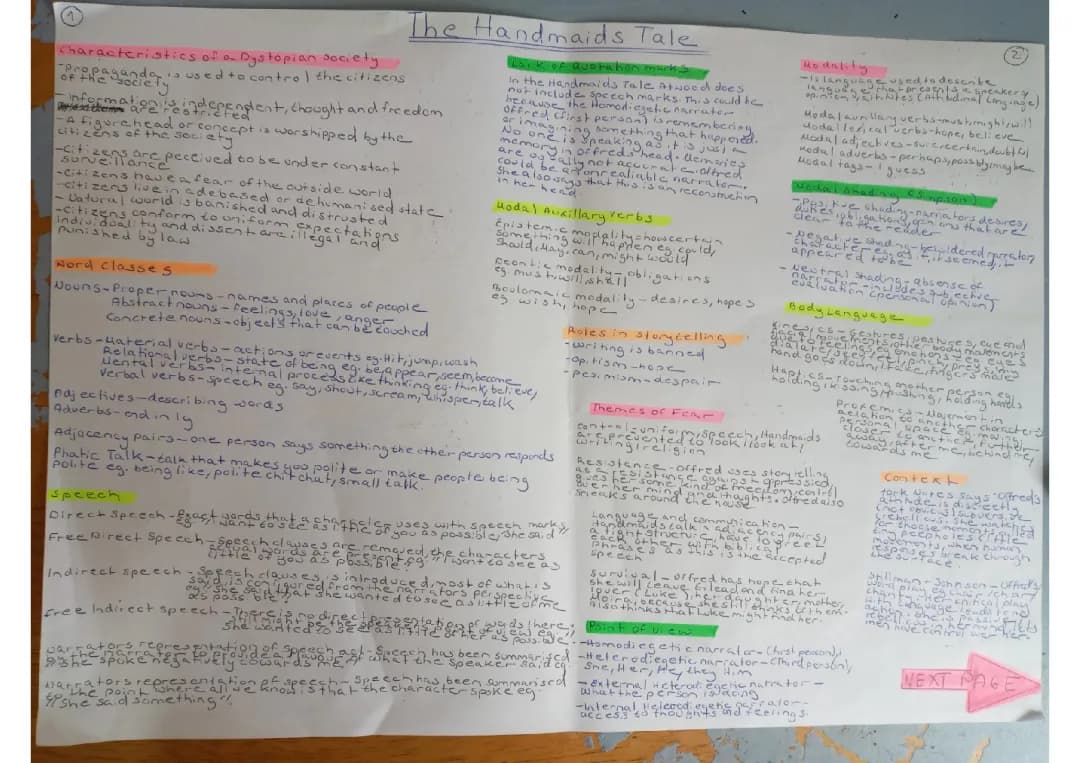 1
The Handmaids Tale
2
Characteristics of a Dystopian society
-Propaganda is used to control the citizens
of the society
-information, independent, thought and freedom
are restricted
-A figurehead or concept is worshipped by the
citizens of the society
-Citizens are peceived to be under constant
surveillance
-Citizens have a fear of the outside world
-Citizens live in a debased or dehumanised state
-Natural world is banished and distrusted
-Citizens conform to uniform expectations
individuality and dissent are illegal and
punished by law
Word Classes
Nouns-Proper nouns-names and places of people
Abstract nouns-feelings, love, anger
Concrete nouns-objects that can be touched
Verbs-Material verbs-actions or events eg. Hit, jump, wash
Relational verbs-state of being eg. be, appear, seem, become
Mental verbs-internal process like thinking eg. think, believe,
Verbal verbs-speech eg. say, shout, scream, whisper, talk
Adjectives-describing words
Adverbs-end in ly
Adjacency pairs-one person says something the other person responds
Phatic Talk-talk that makes you polite or make people being
polite eg. being like, polite chit chat, small talk.
Speech
Direct Speech-Exact words that a character uses with speech marks
eg "I want to see as little of you as possible," she said"
Free Direct Speech-Speech clauses are removed, the characters
actual words are present eg. "I want to see as
little of you as possible"
Indirect speech-Speech clauses is introduced, most of what is
said is configured from the narrators perspective
eg. She said that she wanted to see as little of me
as possible"
Free Indirect speech-There is no direct presentation of words there
still might be the point of view eg.
She wanted to see as little of me as possible.
Narrators representation of speech act-Speech has been summarised
by the narrator to provide a flavour of what the speaker said eg
"She spoke negatively towards me"
Narrators representation of speech-Speech has been summarised
to the point where all we know is that the character spoke eg.
"She said something"
Lack of Quotation marks
In the Handmaids Tale Atwood does
not include speech marks. This could be
because the Homodiegetic narrator
Offred (first person) is remembering
or imagining something that happened.
No one is speaking as it is just a
memory in Offreds head. Memories
are usually not accurate. Offred
could be an unrealiable narrator.
She also says that this is a reconstruction
in her head
Modal Auxillary verbs
Epistemic modality-how certain
something will happen eg could,
should, may, can, might would
Deontic modality-obligations
eg must, will, shall
Boulomaic modality-desires, hopes
eg wish, hope
Roles in storytelling
-Writing is banned
-optism-hope
-pesimism-despair
Themes of Fear
Control-uniform, speech, Handmaids
are prevented to look/look at/
writing/religion
Resistance-Offred uses story telling
as a resistance against oppressied,
gives her some kind of freedom, control
over her mind and thoughts. Offred also
sneaks around the house
Language and communication-
Handmaids talk in adjacency pairs/
a tight structure, have to greet
each other with biblical
phrases as this is the accepted
speech
Survival-Offred has hope that
she will leave Gilead and find her
lover (Luke), her daughter, mother,
Moira because she still thinks of them.
Also thinks that Luke might find her.
Point of view
-Homodiegetic narrator-(first person) I
-Heterodiegetic narrator-(Third person),
She, Her, He, they Him
-External Heterodiegetic narrator-
what the person is doing
-Internal Heterodiegetic narrator-
access to thoughts and feelings.
Modality
-Is language used to describe
language that presents a speakers
opinion, attitudes (Attitudinal Language)
Modal auxillary verbs-must, might, will
Modal lexical verbs-hope, believe
Modal adjectives-sure, certain, doubtful
Modal adverbs-perhaps, possibly, maybe
Modal tags-I guess
Modal Shading (Simpson)
-Positive shading-narrators desires,
duties, obligations, opinions that are
clear to the reader
-Negative shading-bewildered narrator/
character eg as if, it seemed, it
appeared to be
-Neutral shading-absense of
narrator-includes subjective
evaluation (personal opinion)
Body Language
Kinesics-Gestures, postures, eye and
facial movements, other body movements
due to feelings/emotions eg eyes
my
hand go down, fingers
Haptics-Touching another person eg
holding, pushing, holding hands
Proxemics-Movement in
relation to another characters
personal space eg moving
closer to another, further
away, after me, behind me,
towards me
Context
York Notes says "Offred's
attitude is discreetly
(not obvious) subversive
rebellious. She watches
for the "tiny peepholes"
moments when human
responses break through
surface".
Stillman+Johnson-Offred's
word play eg chair/charity
play
language.
action she is passive, lets
men have control over her
NEXT PAGE